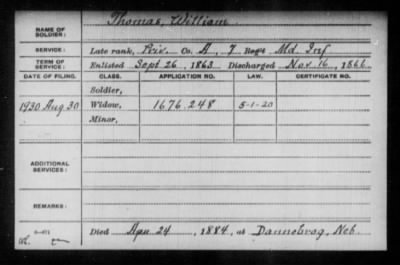 NAME OF SOLDIER: Thomas, William
SERVICE: Late rank, Priv. Co. A, 7 Reg't Md. Inf
TERM OF SERVICE: Enlisted Sept 26, 1863 Discharged Nov. 16, 1866
DATE OF FILING. CLASS. APPLICATION NO. LAW. CERTIFICATE NO.
Soldier,
1930 Aug 30 Widow, 1676.248 5-1-20
Minor,
ADDITIONAL SERVICES:
REMARKS:
Died Apr 24, 1884, at Dannebrog, Neb.